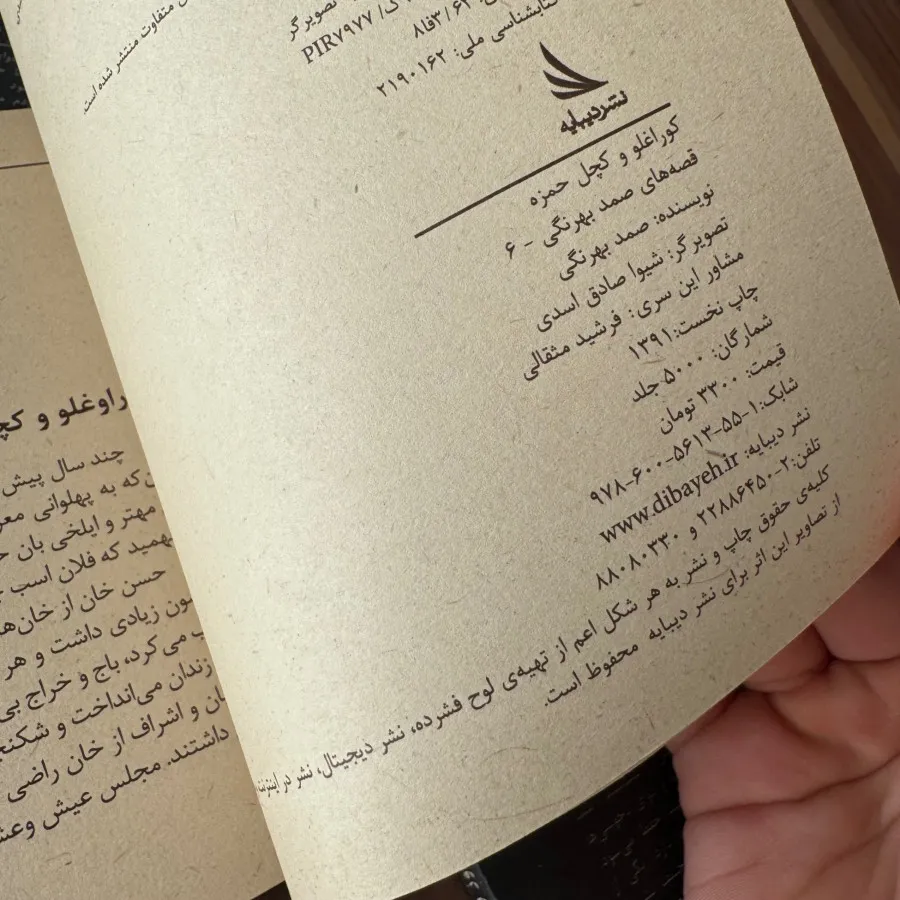 تصویر گر
متفاوت منتشر شده است.
PIR۷۹۷۷ /ک
۸فا۳/۶۲
کتابشناسی ملی: ۲۱۹۰۱۶۲
نشر دیبایه
کوراغلو و کچل حمزه
قصه‌های صمد بهرنگی - ۶
نویسنده: صمد بهرنگی
تصویر گر: شیوا صادق اسدی
مشاور این سری: فرشید مثقالی
چاپ نخست:۱۳۹۱
شمارگان: ۵۰۰۰ جلد
قیمت: ۳۳۰۰ تومان
شابک:۱-۵۵-۵۶۱۳-۶۰۰-۹۷۸
نشر دیبایه: www.dibayeh.ir
تلفن:۲-۲۲۸۸۶۴۵۰ و ۸۸۰۸۰۳۳۰
کلیه‌ی حقوق چاپ و نشر به هر شکل اعم از تهیه‌ی لوح فشرده، نشر دیجیتال، نشر در اینترنت
از تصاویر این اثر برای نشر دیبایه محفوظ است.
و کچ
چند سال پیش
که به پهلوانی
مهتر و ایلخی بان
که فلان است
حسن خان از خان‌ها
زیادی داشت و هر
می‌کرد، باج و خراج بی
زندان می‌انداخت و
و اشراف از خان راضی
داشتند. مجلس عیش و